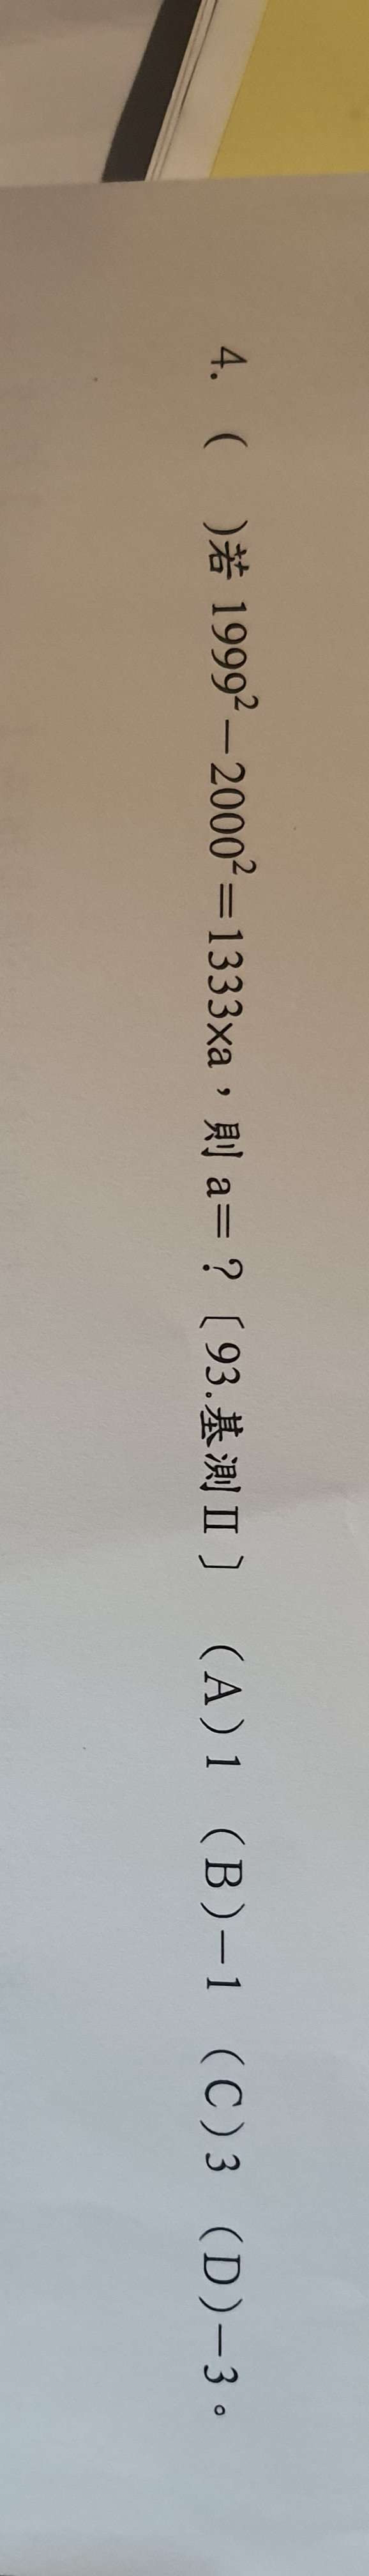 4. (　)若 1999²－2000²＝1333×a，則 a＝？〔93.基測Ⅱ〕 (A)1 (B)－1 (C)3 (D)－3。